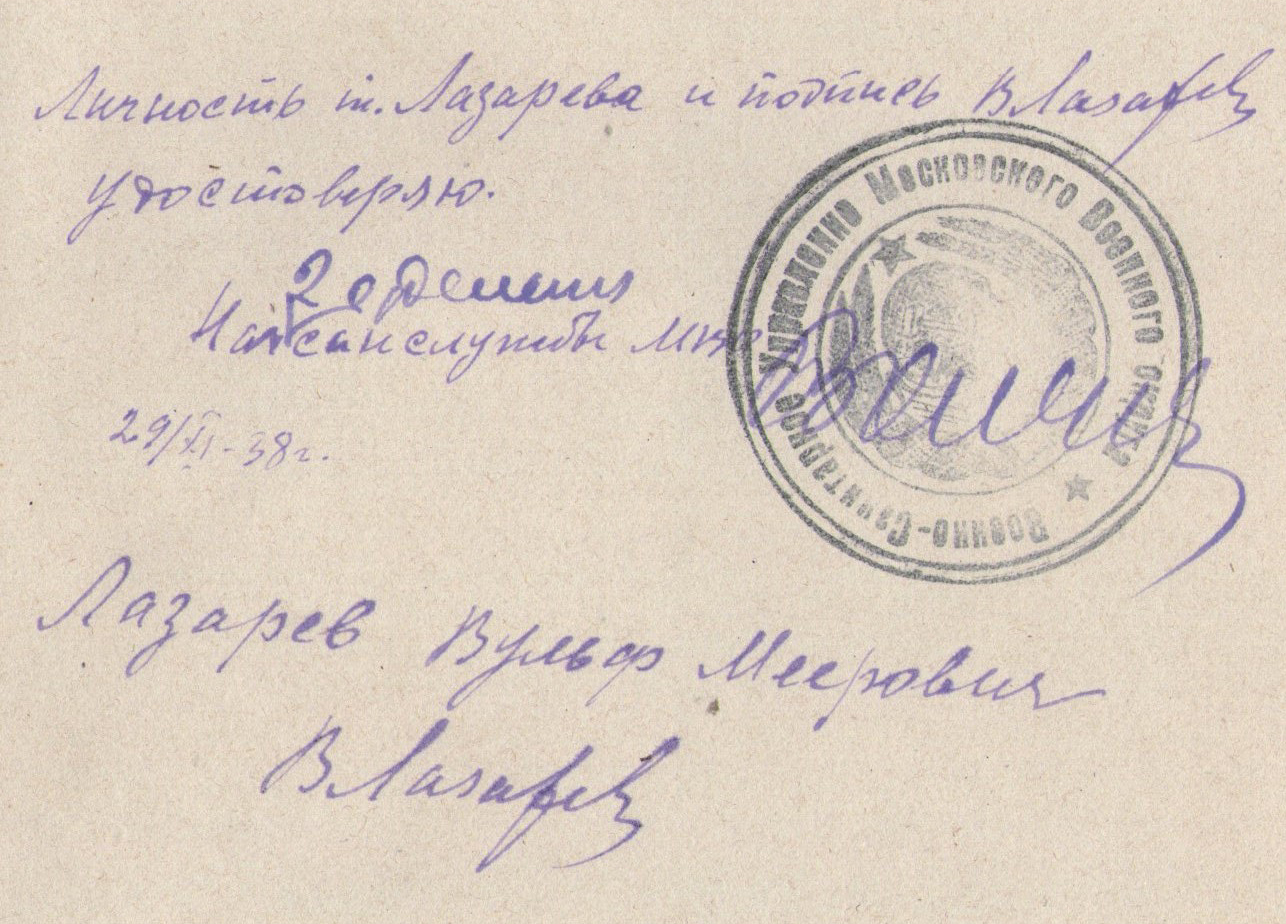 Личность т. Лазарева и подпись ВЛазарев
удостоверяю.
2 отделения
Нач санслужбы МВО
Военно-Санитарное Управление Московского Военного округа
29/XI-38г.
Лазарев Вульф Меерович
ВЛазарев